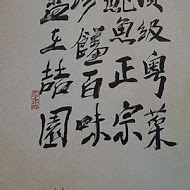 頂級粵菜
鮑魚正宗
珍饈百味
盡在喆園